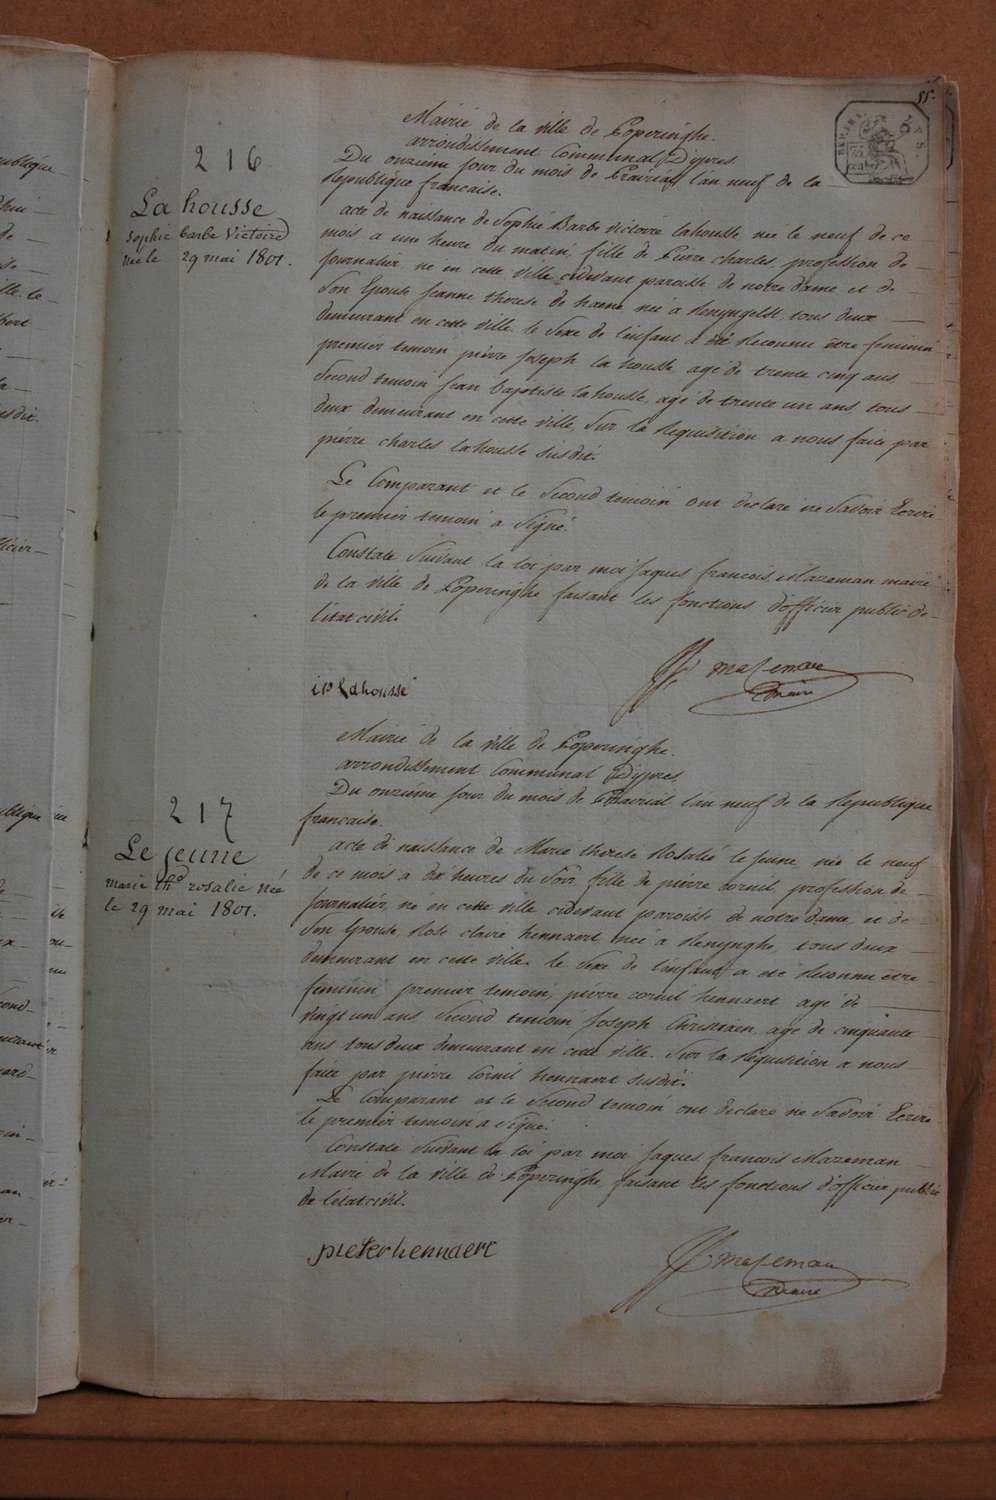 55.
216
La housse
Sophie barbe Victoire
née le 29 mai 1801.
Mairie de la ville de Poperinghe.
arrondissement Communal D'ypres.
Du onzieme jour du mois de Prairial l'an neuf de la
Republique francaise.
acte de naissance de Sophie Barbe victoire lahousse née le neuf de ce
mois a une heure du matin, fille de Pierre charles, profession de
journalier, né en cette ville cidevant paroisse de notre dame et de
Son Epouse Jeanne therese de haene née à Renyngelst, tous deux
demeurant en cette ville. le Sexe de l'enfant a été Reconnu être feminin
premier temoin pierre Joseph la housse agé de trente cinq ans
Second temoin jean baptiste lahousse, agé de trente un ans, tous
deux demeurant en cette ville, Sur la Requisition a nous faite par
pierre charles lahousse susdit.
Le Comparant et le Second temoin ont declaré ne Savoir Ecrire
le premier temoin a Signé.
Constaté Suivant la loi par moi Jaques francois Mazeman maire
de la ville de Poperinghe faisant les fonctions d'officier public de
l'etat civil.
Mazeman
maire
lahousse
217
Le jeune
marie thd rosalie née
le 29 mai 1801.
Mairie de la ville de Poperinghe.
arrondissement Communal D'ypres
Du onzieme jour du mois de Prairial l'an neuf de la Republique
francaise.
acte de naissance de Marie therese Rosalie le Jeune, née le neuf
de ce mois a dix heures du Soir, fille de pierre corneil, profession de
journalier, né en cette ville cidevant paroisse de notre dame, et de
Son Epouse Rose claire hennaert née à Renynghe, tous deux
demeurant en cette ville. le Sexe de l'enfant a été Reconnu être
feminin premier temoin, pierre corneil hennaert agé de
vingt un ans Second temoin Joseph Christiaen, agé de cinquante
ans tous deux demeurant en cette ville. Sur la Requisition a nous
faite par pierre Corneil hennaert susdit.
Le Comparant et le Second temoin ont declaré ne Savoir Ecrire
le premier temoin a Signé.
Constaté Suivant la loi par moi Jaques francois Mazeman
Maire de la ville de Poperinghe faisant les fonctions d'officier public
de l'etat civil.
pieter hennaert
Mazeman
maire